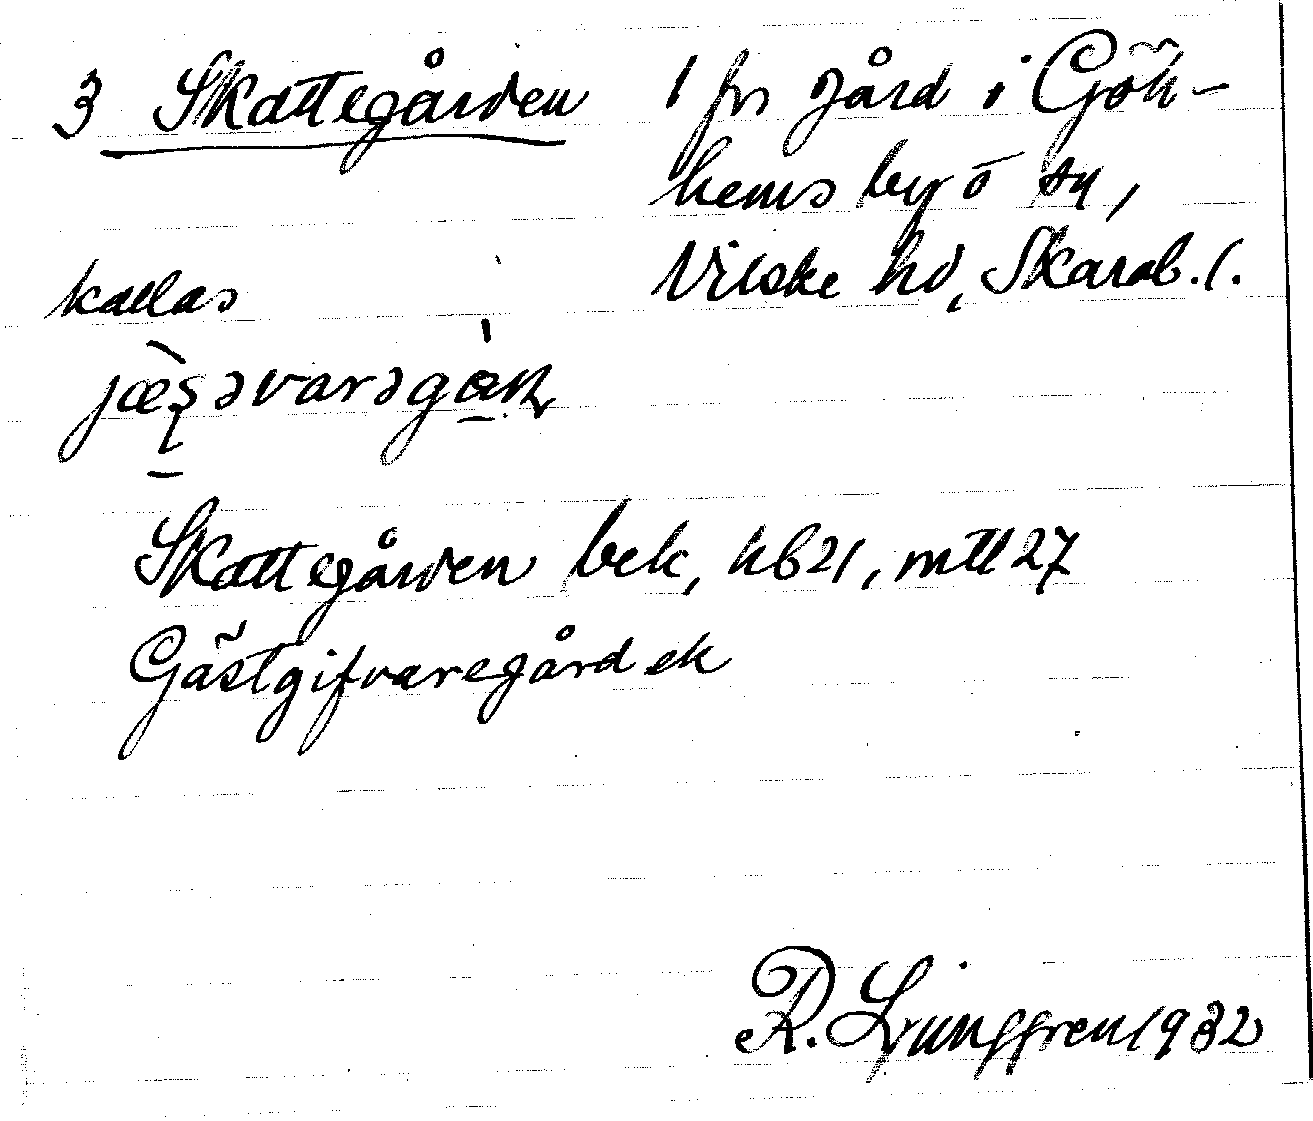 3 Skattegården 1 frs gård i Göke-
hems by o sn,
Vilske hd, Skarab. l.
kallas
Skattegården bek, hb21, mtl 27
Gästgifvaregård ek
R. Ljunggren 1932